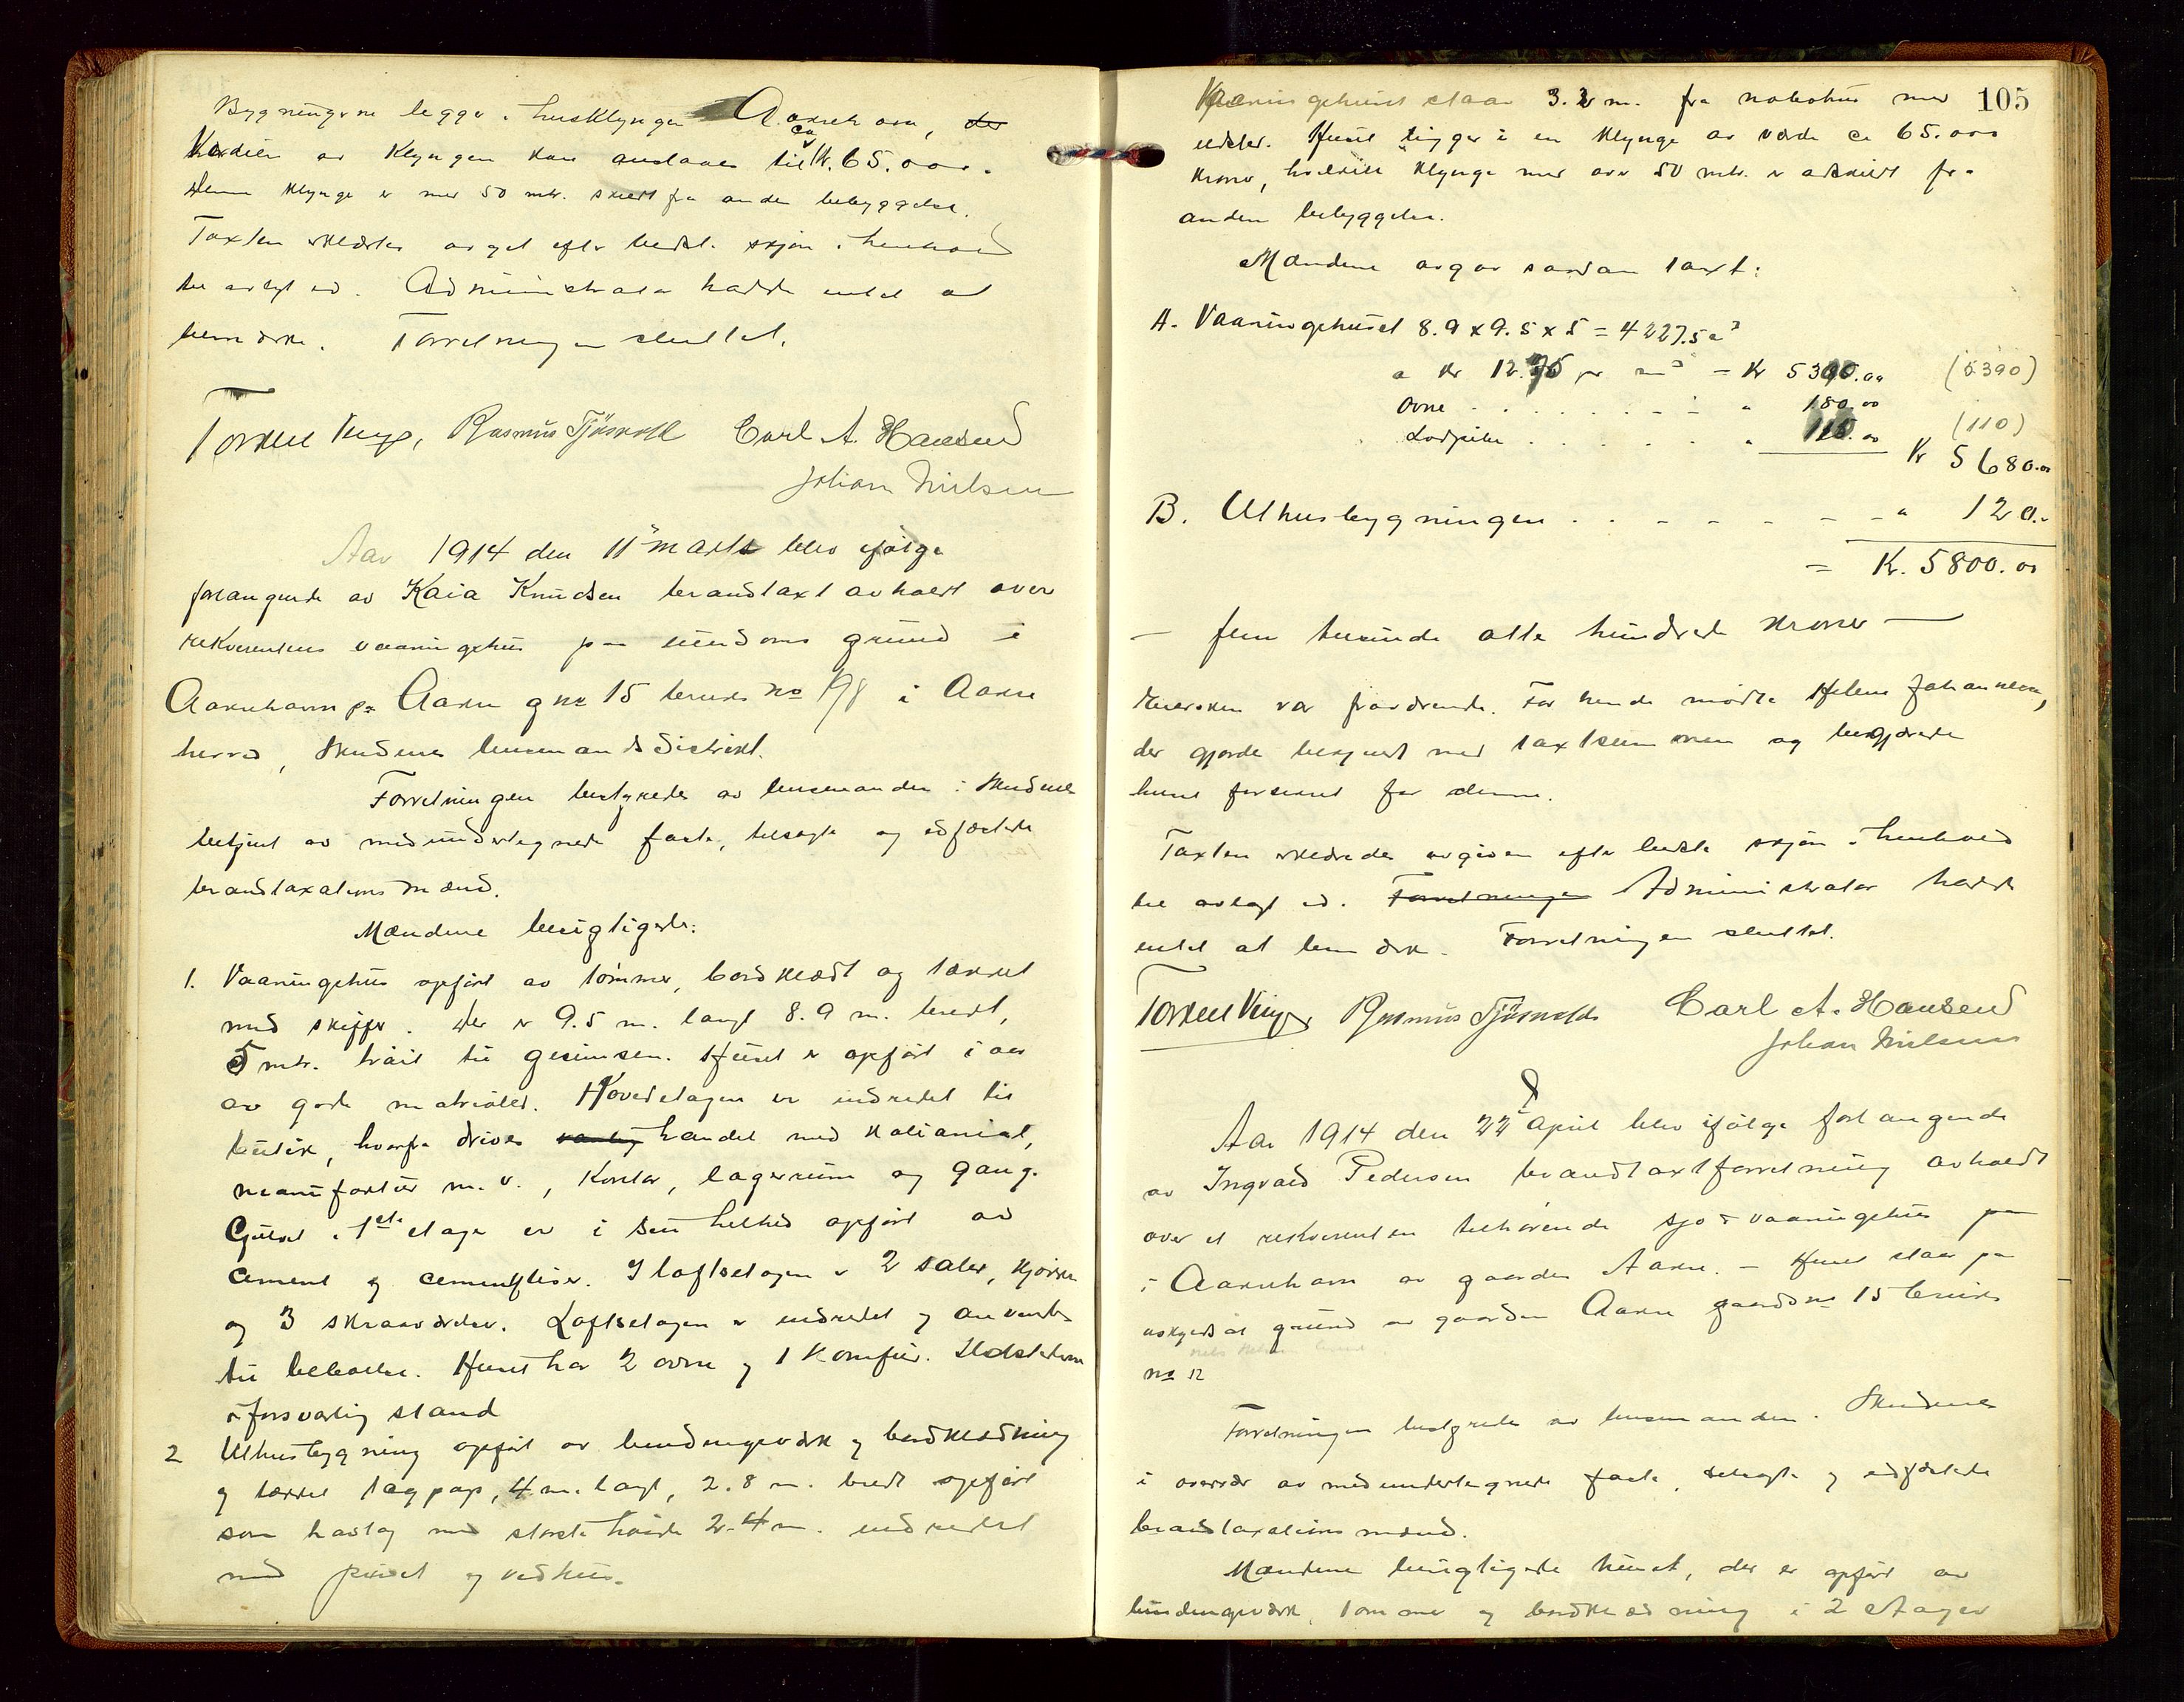 Bygningerne ligger i husklyngen Aakrehavn, der
Værdien av klyngen kan anslaaes til ca Kr. 65.000.
Denne klynge er mer 50 mtr. skilt fra anden bebyggelse.
Taxten erklærtes avgit efter bedste skjøn i henhold
til avlagt ed. Administrator hadde intet at
bemærke. Forretningen sluttet.
Torkel Rasmus Tjøsvold Carl A. Hansend
Johan Nielsen
Aar 1914 den 11 marts blev ifølge
forlangende av Kaia Knudsen brandtaxt avholdt over
rekvirentens vaaningshus paa eiendoms grund i
Aakrehavn paa Aakre g no 15 bruks no 198 i Aakre
herred, Skudenes lensmandsdistrikt.
Forretningen bestyredes av lensmanden i Skudenes
betjent av medundertegnede faste, tilsagte og edfæstede
brandtaxationsmænd.
Mændene besigtigede:
1. Vaaningshus opført av tømmer, bordklædt og tækket
med skiffer. Det er 9.5 m. langt 8.9 m. bredt,
5 mtr. høit til gesimsen. Huset er opført i aar
av gode materialer. Hovedetagen er indredet til
butik, hvorfra drives handel med kolonial,
manufaktur m.v., kontor, lagerrum og gang.
Gulvet i 1ste etage er i sin helhed opført av
cement og cementfliser. I loftsetagen er 2 saler, kjøkken
og 3 skraaværelser. Loftsetagen er indredet og anvendes
til beboelse. Huset har 2 ovne og 1 komfur. Ildstederne
i forsvarlig stand
2 Uthusbygning opført av bindingsverk og bordklædning
og tækket tagpap, 4 m. langt, 2.8 m. bredt opført
som halvtag med største høide 2.4 m. indredet
med privet og vedhus.
105
Vaaningshuset staar 3.2 m. fra nabohus med
ildsted. Huset ligger i en klynge av værdi ca 65.000
kroner, hvilken klynge med over 50 mtr. er adskilt fra
anden bebyggelse.
Mændene avgav saadan taxt:
A. Vaaningshuset 8.9 x 9.5 x 5 = 422.75 m³
a Kr 12.75 pr m³ = Kr 5390.00 (5390)
Ovne . . . . . . . " 180.00
Lodpiber . . . . . . " 110.00 (110)
Kr 5680.00
B. Uthusbygningen . . . . . . " 120.-
= Kr. 5800.00
— fem tusinde otte hundrede kroner —
Eiersken var fraværende. For hende mødte Helene Johannesen,
der gjorde bekjendt med taxtsummen og begjærede
huset forsikret for denne.
Taxten erklæredes avgiven efter bedste skjøn i henhold
til avlagt ed. Forretningen Administrator hadde
intet at bemærke. Forretningen sluttet.
Torkel Rasmus Tjøsvold Carl A. Hansend
Johan Nielsen
Aar 1914 den 22 april blev ifølge forlangende
av Ingvald Pedersen brandtaxtforretning avholdt
over et rekvirenten tilhørende sjø & vaaningshus paa
i Aakrehavn av gaarden Aakre. – Huset staar paa
uskyldsat grund av gaarden Aakre gaardsno 15 bruks
no 12
Forretningen bestyredes av lensmanden i Skudenes
i overvær av medundertegnede faste, tilsagte og edfæstede
brandtaxationsmænd.
Mændene besigtigede huset, der er opført av
bindingsverk, tømmer og bordklædning i 2 etager